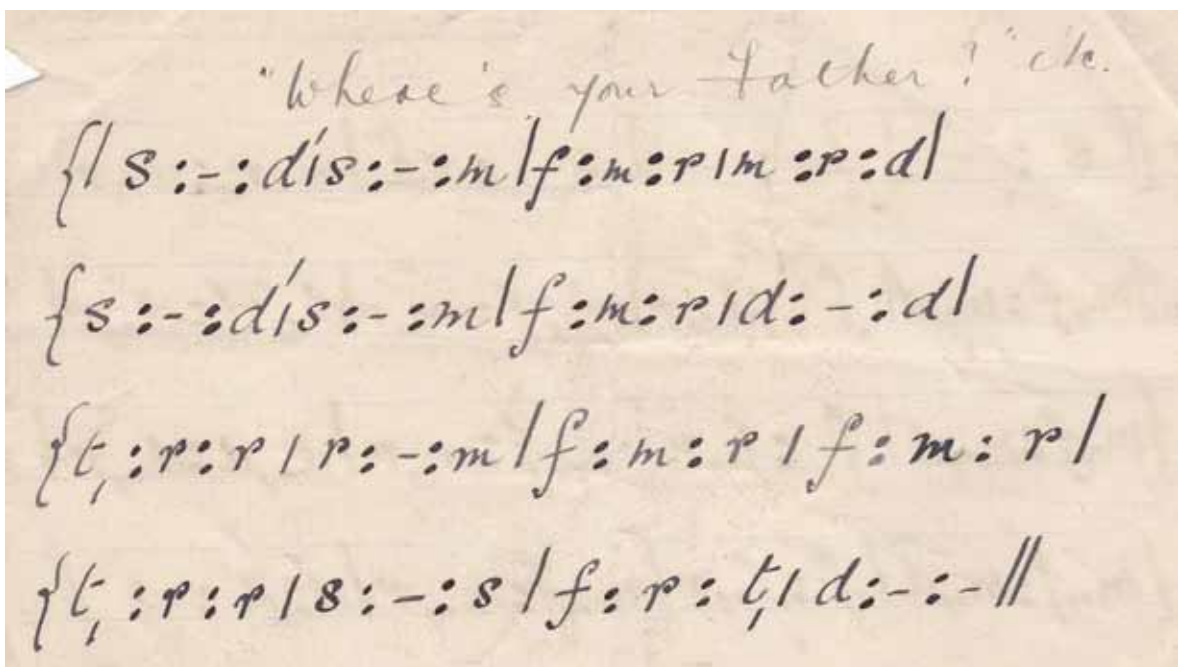 "Where's your Father?" etc.
{| s :- : d' | s :- : m | f : m : r | m : r : d |
{ s :- : d' | s :- : m | f : m : r | d : - : d |
{ t, : r : r | r : - : m | f : m : r | f : m : r |
{ t, : r : r | s : - : s | f : r : t, | d : - : - ||